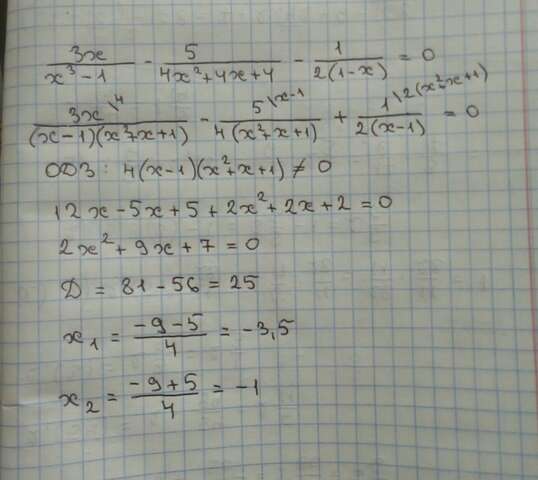 3x/(x³-1) - 5/(4x²+4x+4) - 1/(2(1-x)) = 0
3x\4/((x-1)(x²+x+1)) - 5\x-1/(4(x²+x+1)) + 1\2(x²+x+1)/(2(x-1)) = 0
ОДЗ: 4(x-1)(x²+x+1) ≠ 0
12x - 5x + 5 + 2x² + 2x + 2 = 0
2x² + 9x + 7 = 0
Д = 81 - 56 = 25
x₁ = (-9-5)/4 = -3,5
x₂ = (-9+5)/4 = -1